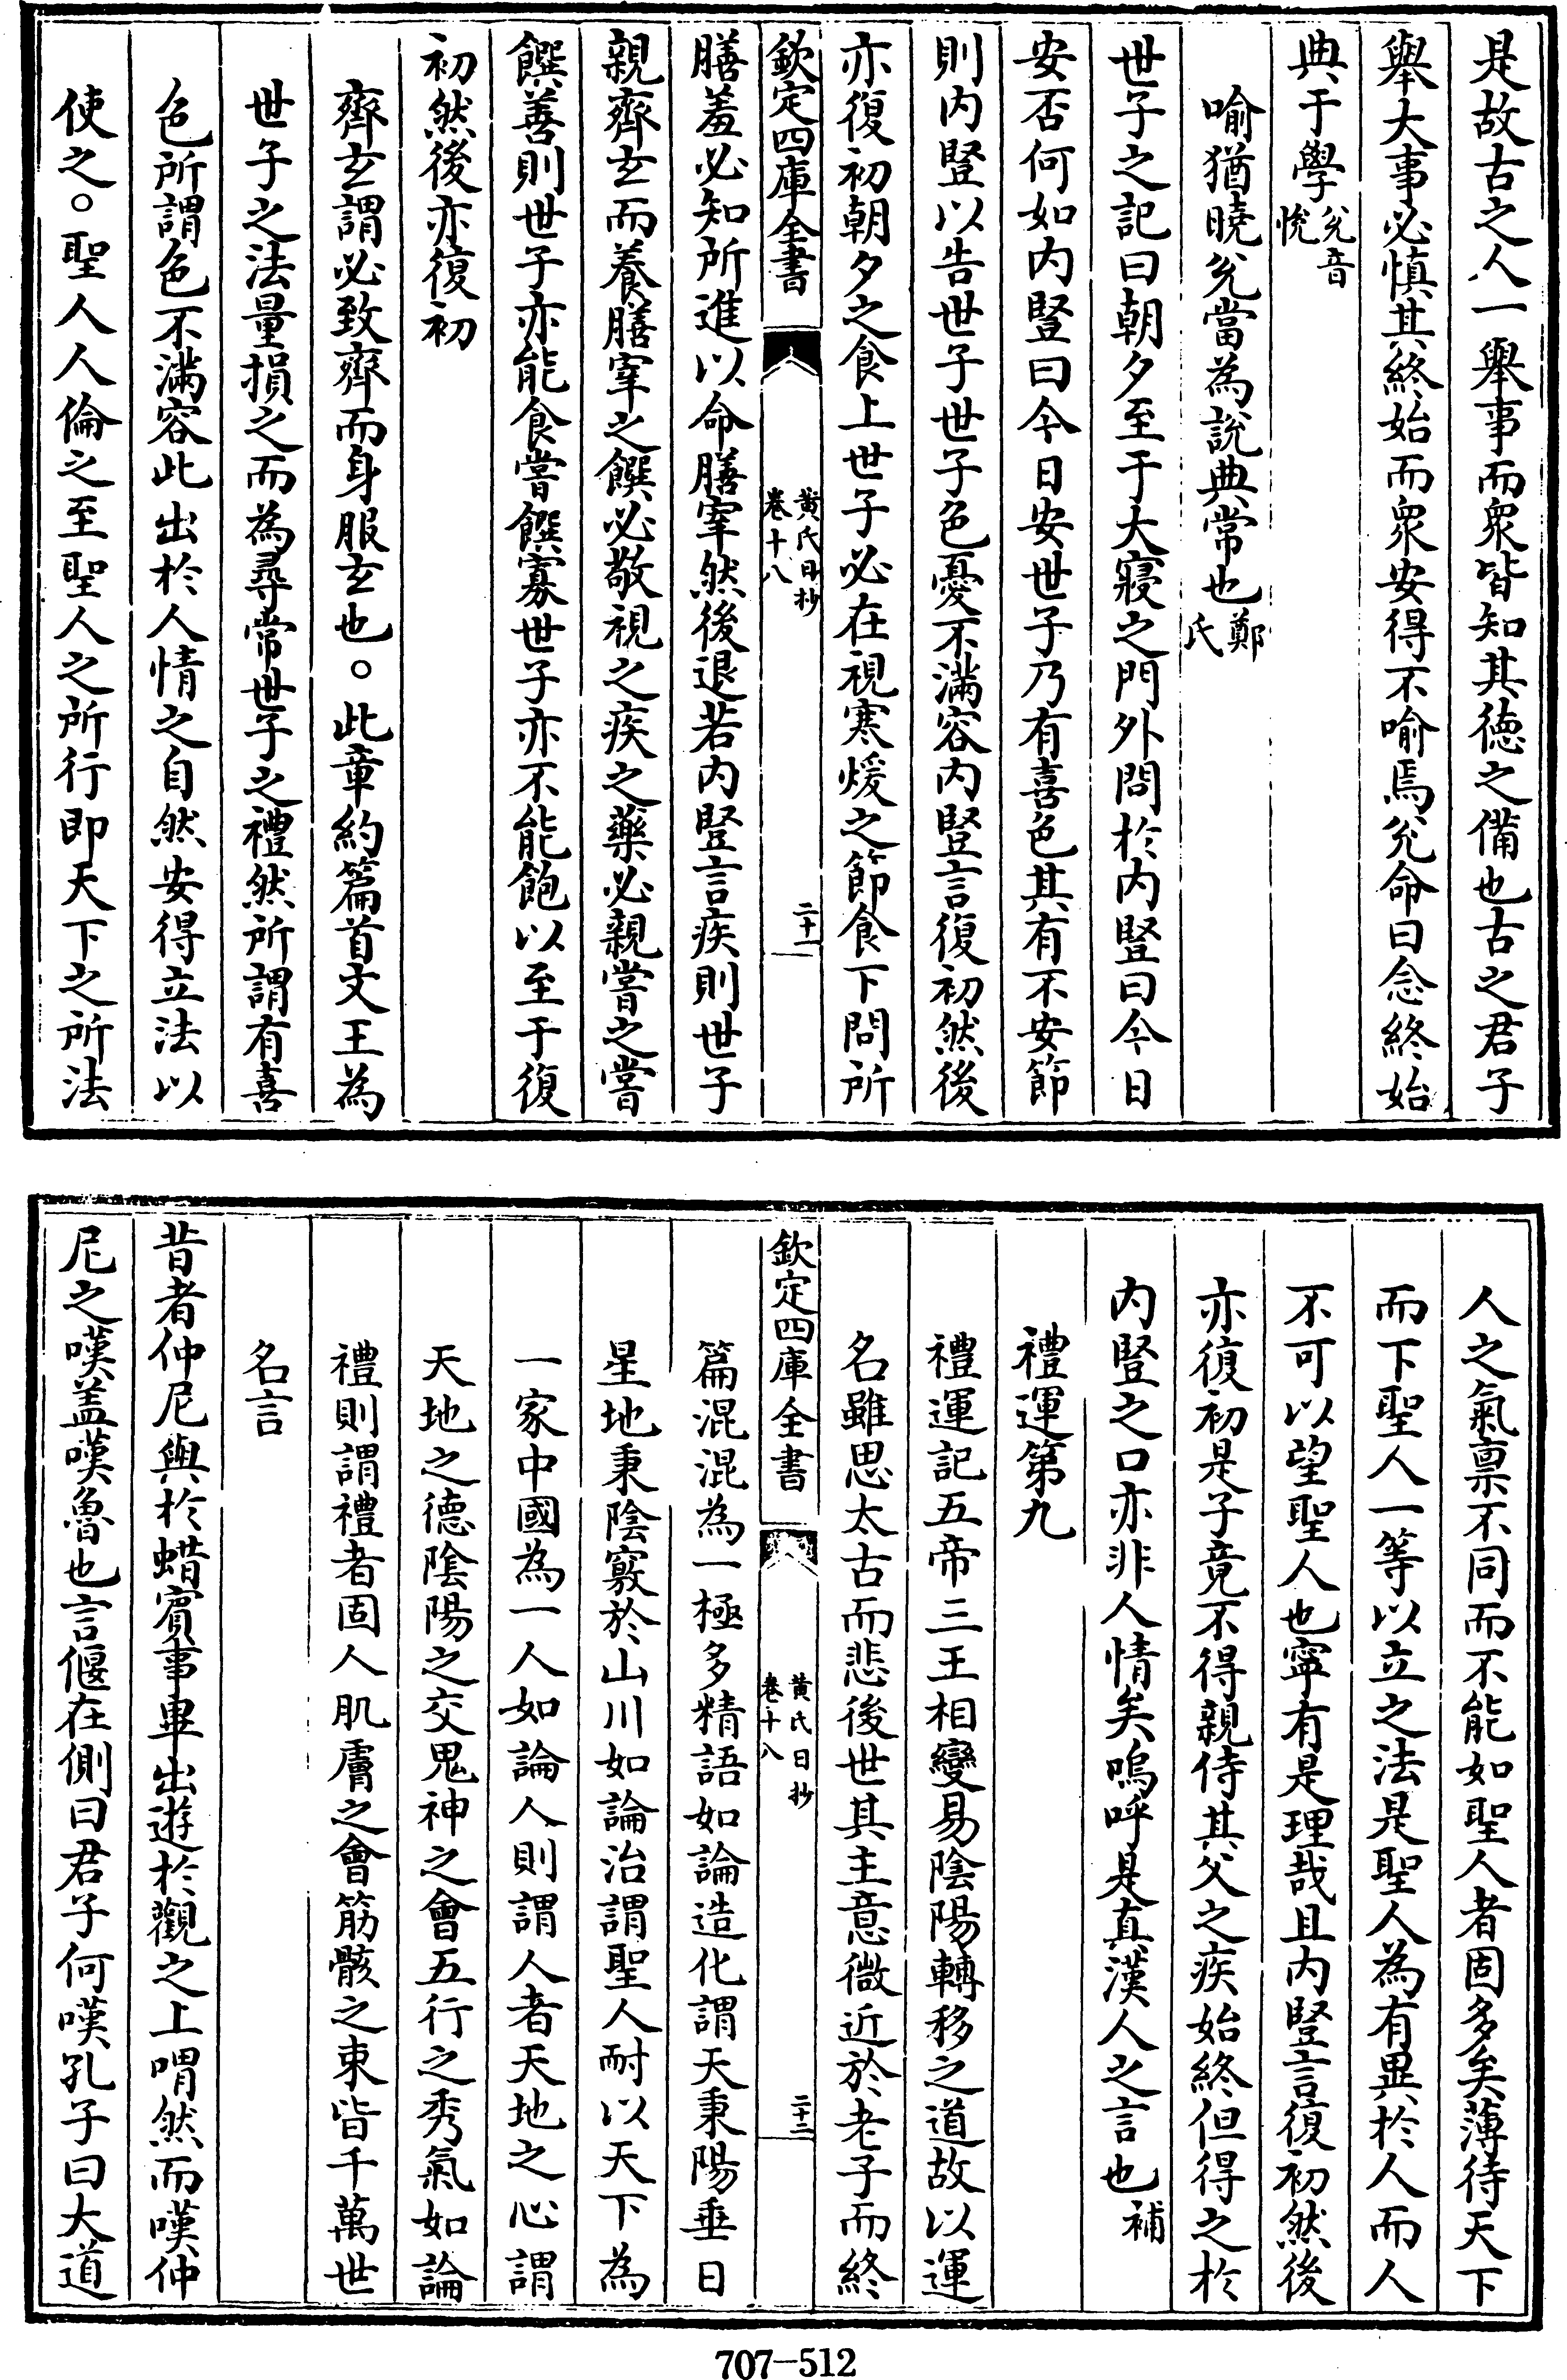 是故古之人一舉事而衆皆知其德之備也古之君子
舉大事必慎其終始而衆安得不喻焉兊命曰念終始
典于學兊音悦
喻猶曉兊當為說典常也鄭氏
世子之記曰朝夕至于大寢之門外問於内豎曰今日
安否何如内豎曰今日安世子乃有喜色其有不安節
則内豎以告世子世子色憂不滿容内豎言復初然後
亦復初朝夕之食上世子必在視寒煖之節食下問所
欽定四庫全書
黄氏日抄
卷十八
二十一
膳羞必知所進以命膳宰然後退若内豎言疾則世子
親齊玄而養膳宰之饌必敬視之疾之藥必親嘗之嘗
饌善則世子亦能食嘗饌寡世子亦不能飽以至于復
初然後亦復初
齊玄謂必致齊而身服玄也。此章約篇首文王為
世子之法量損之而為尋常世子之禮然所謂有喜
色所謂色不滿容此出於人情之自然安得立法以
使之。聖人人倫之至聖人之所行即天下之所法
人之氣禀不同而不能如聖人者固多矣薄待天下
而下聖人一等以立之法是聖人為有異於人而人
不可以望聖人也寧有是理哉且内豎言復初然後
亦復初是子竟不得親侍其父之疾始終但得之於
内豎之口亦非人情矣嗚呼是真漢人之言也補
禮運第九
禮運記五帝三王相變易陰陽轉移之道故以運
名雖思太古而悲後世其主意微近於老子而終
欽定四庫全書
黄氏日抄
卷十八
二十二
篇混混為一極多精語如論造化謂天秉陽垂日
星地秉陰竅於山川如論治謂聖人耐以天下為
一家中國為一人如論人則謂人者天地之心謂
天地之德陰陽之交鬼神之會五行之秀氣如論
禮則謂禮者固人肌膚之會筋骸之束皆千萬世
名言
昔者仲尼與於蜡賓事畢出遊於觀之上喟然而嘆仲
尼之嘆盖嘆魯也言偃在側曰君子何嘆孔子曰大道
707-512